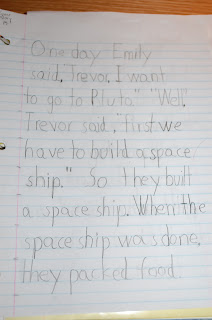 One day Emily
said, "Trevor, I want
to go to Pluto." "Well,"
Trevor said, "First we
have to build a space
ship." So they built
a space ship. When the
space ship was done,
they packed food.